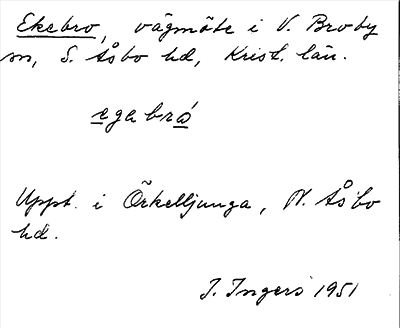 Ekebro, vägmöte i V. Broby
sn, S. Åsbo hd, Krist. län.
egabrá
Uppt. i Örkelljunga, N. Åsbo
hd.
I. Ingers 1951